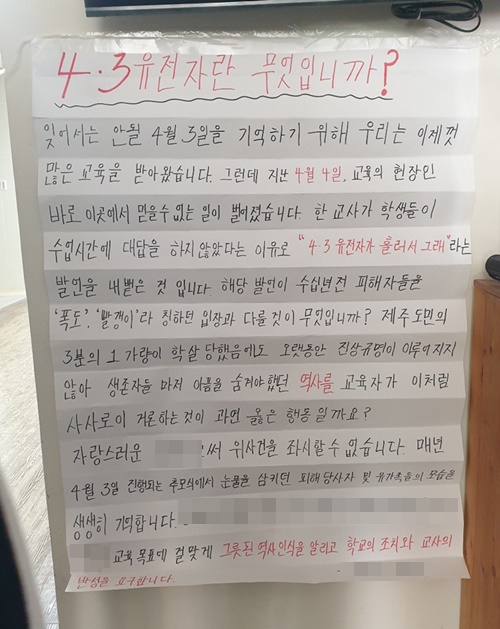 4·3유전자란 무엇입니까?
잊어서는 안될 4월 3일을 기억하기 위해 우리는 이제껏
많은 교육을 받아왔습니다. 그런데 지난 4월 4일, 교육의 현장인
바로 이곳에서 믿을수 없는 일이 벌어졌습니다. 한 교사가 학생들이
수업시간에 대답을 하지 않았다는 이유로 "4·3 유전자가 흘러서 그래"라는
발언을 내뱉은 것 입니다. 해당 발언이 수십년전 피해자들을
'폭도', '빨갱이'라 칭하던 입장과 다를것이 무엇입니까? 제주도민의
3분의 1 가량이 학살 당했음에도 오랫동안 진상규명이 이루어지지
않아 생존자들 마저 아픔을 숨겨야했던 역사를 교육자가 이처럼
사사로이 거론하는것이 과연 옳은 행동 일까요?
자랑스러운 써 위사건을 좌시할 수 없습니다. 매년
4월 3일 진행되는 추모식에서 눈물을 삼키던 피해당사자 및 유가족들의 모습을
생생히 기억합니다.
교육 목표에 걸맞게 그릇된 역사인식을 알리고 학교의 조치와 교사의
반성을 요구합니다.